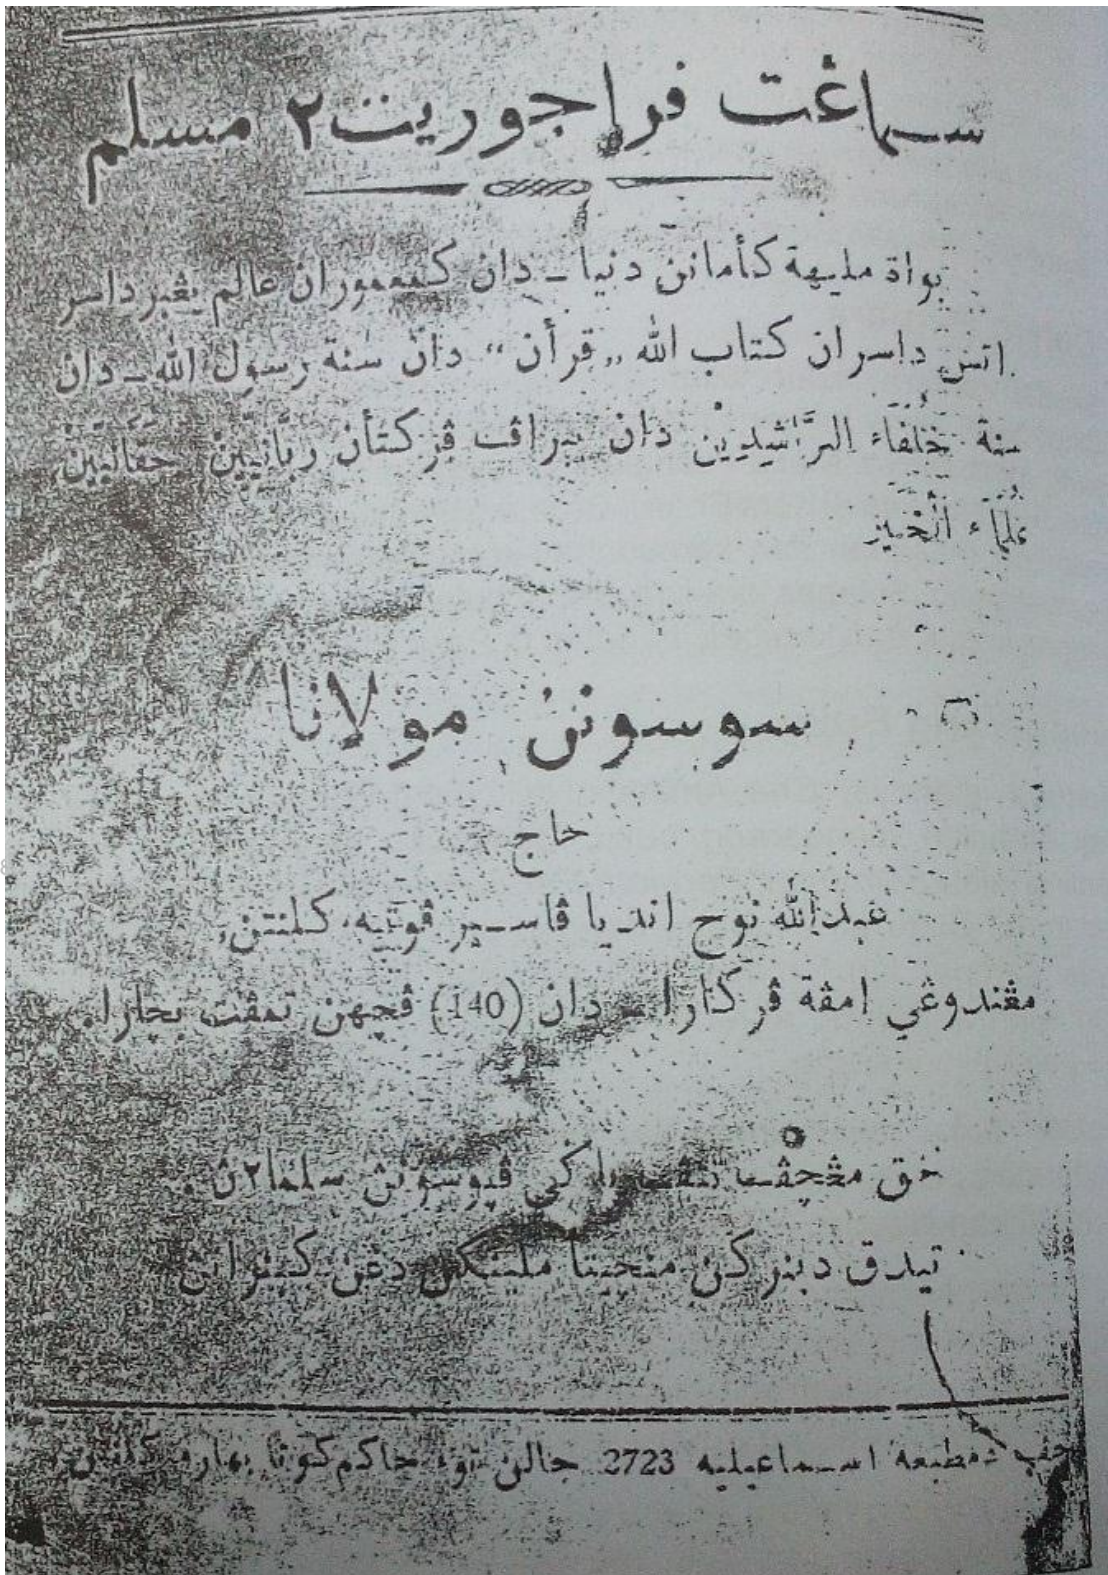 سماڠت فراجوريت٢ مسلم
بواة مليهة كأمانن دنيا ـ دان كمعموران عالم يڠبرداسر
اتس داسران كتاب الله ,,قرأن“ دان سنة رسول الله ـ دان
سنة خُلَفَاء الرَّاشِدِيْن دان ببراڤ ڤركتأن رَبَّانِيِّيْنْ حَقَّانِيِّيْنْ
عُلَمَاء اَلْخَيْر
سوسونن مولانا
حاج
عبدالله نوح اندیا ڤاسير ڤوتيه، كلنتن،
مڠندوڠي امڤة ڤركارا ـ دان (140) ڤچهن تمڤت بچارا.
حق مڠچڤ تتڤ باكي ڤپوسونن سلما٢ڽ.
تيدق دبنركن منچيتا ملينكن دڠن كبنرانڽ
دمطبعه اسماعيليه 2723 جالن توء حاكم كوتا بهارو كلنتن.